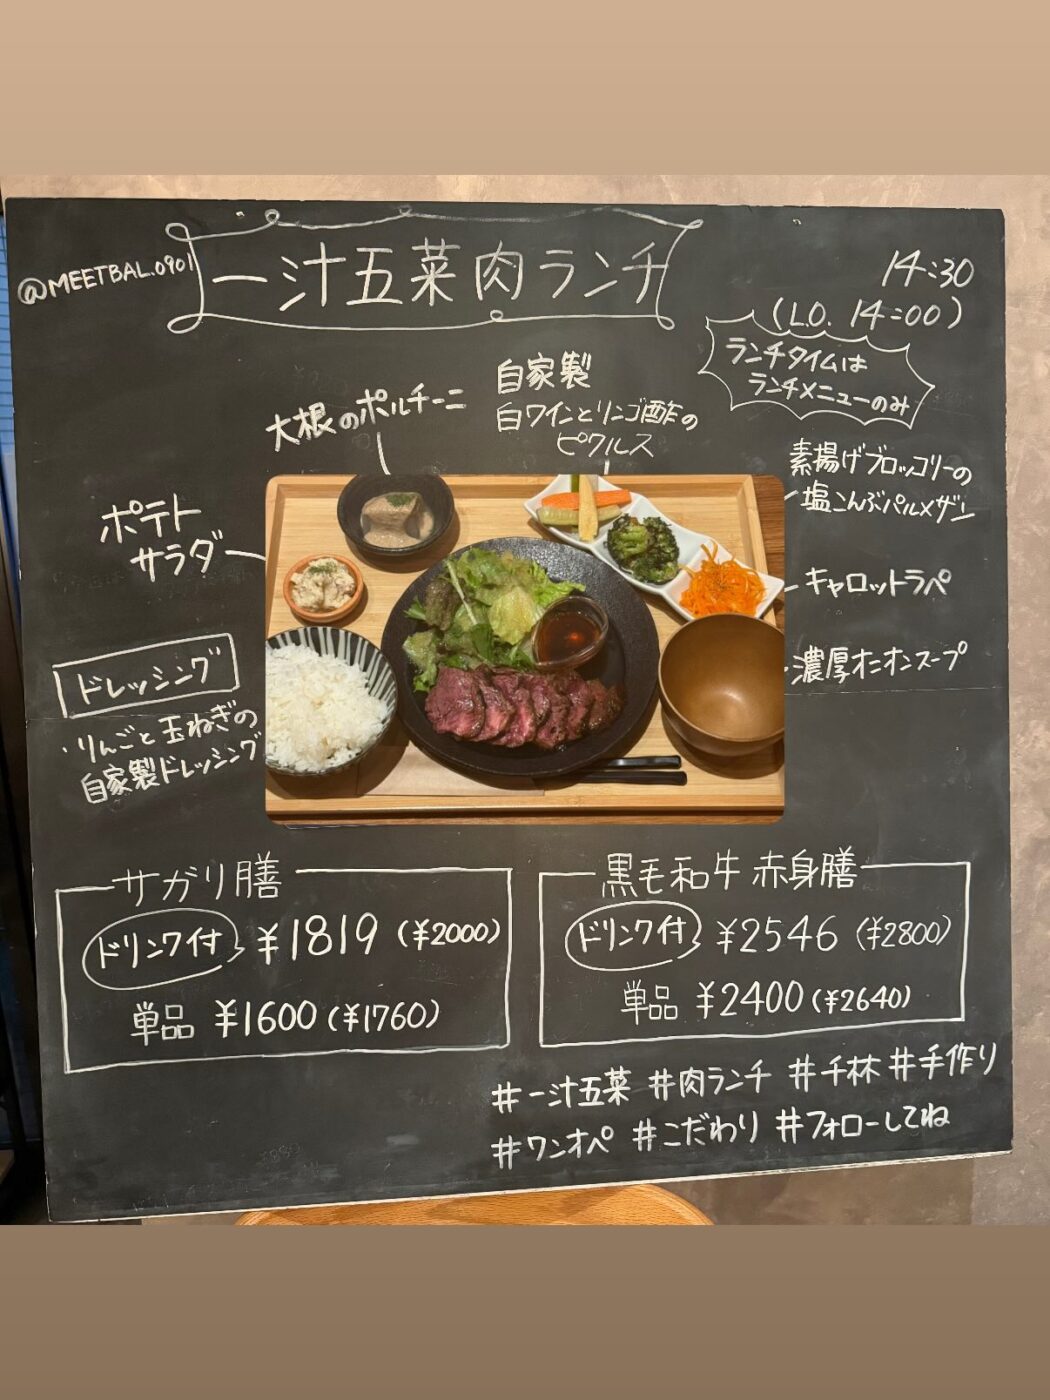 @MEETBAL.0901
一汁五菜肉ランチ
14:30
(L.O. 14:00)
ランチタイムは
ランチメニューのみ
大根のポルチーニ
自家製
白ワインとリンゴ酢の
ピクルス
素揚げブロッコリーの
塩こんぶパルメザン
ポテト
サラダ
キャロットラペ
濃厚オニオンスープ
ドレッシング
・りんごと玉ねぎの
自家製ドレッシング
サガリ膳
ドリンク付 ¥1819 (¥2000)
単品 ¥1600 (¥1760)
黒毛和牛 赤身膳
ドリンク付 ¥2546 (¥2800)
単品 ¥2400 (¥2640)
#一汁五菜 #肉ランチ #千林 #手作り
#ワンオペ #こだわり #フォローしてね